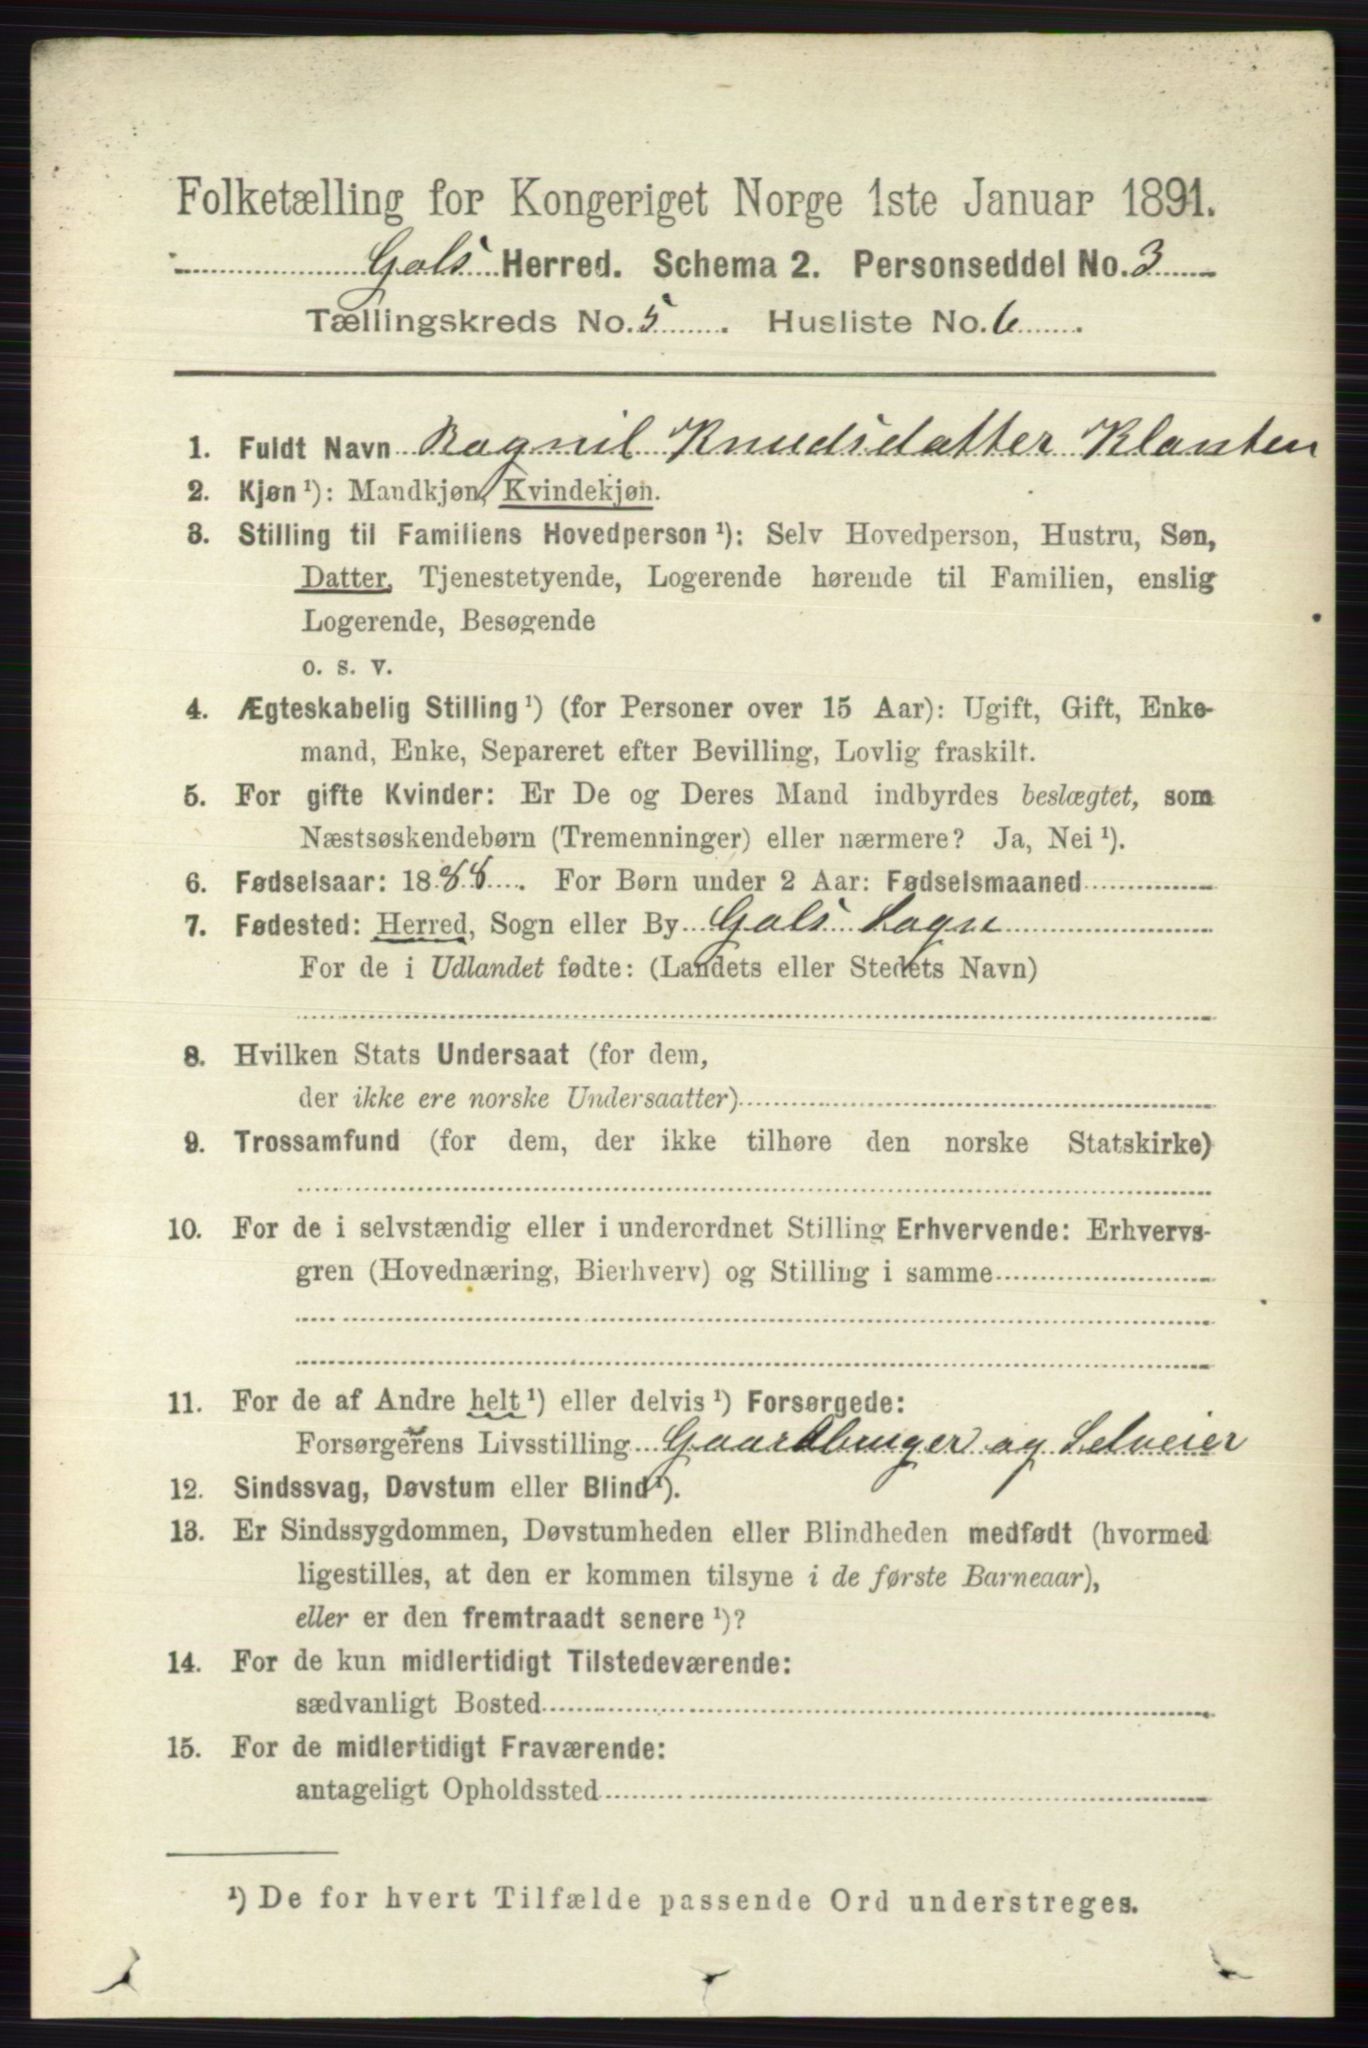 Folketælling for Kongeriget Norge 1ste Januar 1891.
Gols Herred. Schema 2. Personseddel No. 3
Tællingskreds No. 5. Husliste No. 6.
1. Fuldt Navn Ragnil Knudsdatter Klanten
2. Kjøn ¹): Mandkjøn, Kvindekjøn.
3. Stilling til Familiens Hovedperson ¹): Selv Hovedperson, Hustru, Søn,
Datter, Tjenestetyende, Logerende hørende til Familien, enslig
Logerende, Besøgende
o. s. v.
4. Ægteskabelig Stilling ¹) (for Personer over 15 Aar): Ugift, Gift, Enke-
mand, Enke, Separeret efter Bevilling, Lovlig fraskilt.
5. For gifte Kvinder: Er De og Deres Mand indbyrdes beslægtet, som
Næstsøskendebørn (Tremenninger) eller nærmere? Ja, Nei ¹).
6. Fødselsaar: 1888. For Børn under 2 Aar: Fødselsmaaned
7. Fødested: Herred, Sogn eller By Gols Sogn
For de i Udlandet fødte: (Landets eller Stedets Navn)
8. Hvilken Stats Undersaat (for dem,
der ikke ere norske Undersaatter)
9. Trossamfund (for dem, der ikke tilhøre den norske Statskirke)
10. For de i selvstændig eller i underordnet Stilling Erhvervende: Erhvervs-
gren (Hovednæring, Bierhverv) og Stilling i samme
11. For de af Andre helt ¹) eller delvis ¹) Forsørgede:
Forsørgerens Livsstilling Gaardbruger og Selveier
12. Sindssvag, Døvstum eller Blind ¹).
13. Er Sindssygdommen, Døvstumheden eller Blindheden medfødt (hvormed
ligestilles, at den er kommen tilsyne i de første Barneaar),
eller er den fremtraadt senere ¹)?
14. For de kun midlertidigt Tilstedeværende:
sædvanligt Bosted
15. For de midlertidigt Fraværende:
antageligt Opholdssted
¹) De for hvert Tilfælde passende Ord understreges.